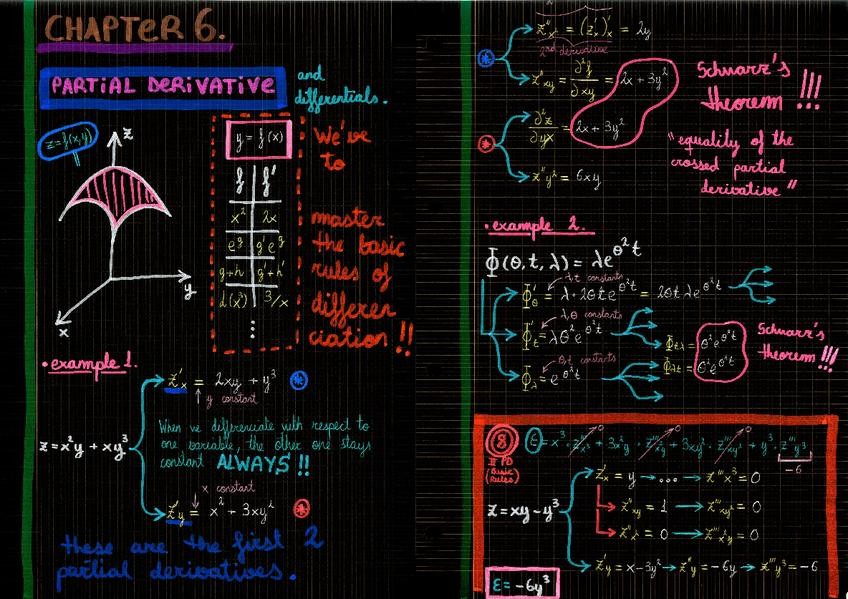 CHAPTER 6.
PARTIAL DERIVATIVE
and
differentials.
z=f(x,y)
z
y
x
y = f(x)
f f'
x² 2x
e^g g'e^g
g+h g'+h'
L(x³) 3/x
We've
to
master
the basic
rules of
differen
ciation !!
• example 1.
z = x²y + xy³
z'x = 2xy + y³
y constant
When we differenciate with respect to
one variable, the other one stays
constant ALWAYS !!
x constant
z'y = x² + 3xy²
these are the first 2
partial derivatives.
z''x² = (z'x)'x = 2y
2nd derivative
z''xy = ∂²f/∂xy = 2x + 3y²
∂²z/∂yx = 2x + 3y²
z''y² = 6xy
Schwarz's
theorem !!!
"equality of the
crossed partial
derivative"
• example 2.
Φ(θ, t, λ) = λe^θ²t
λ,t constants
Φ'θ = λ · 2θt e^θ²t = 2θt λe^θ²t
λ,θ constants
Φ't = λθ²e^θ²t
θ,t constants
Φ'λ = e^θ²t
Φtλ = θ²e^θ²t
Φλt = θ²e^θ²t
Schwarz's
theorem !!!
8
II PD
(Basic
Rules)
ε = x³ · z'''x³ + 3x²y · z'''x²y + 3xy² · z'''xy² + y³ · z'''y³
0 0 0 -6
z = xy - y³
z'x = y → ... → z'''x³ = 0
z''xy = 1 → z'''xy² = 0
z''x² = 0 → z'''x²y = 0
z'y = x - 3y² → z''y² = -6y → z'''y³ = -6
ε = -6y³